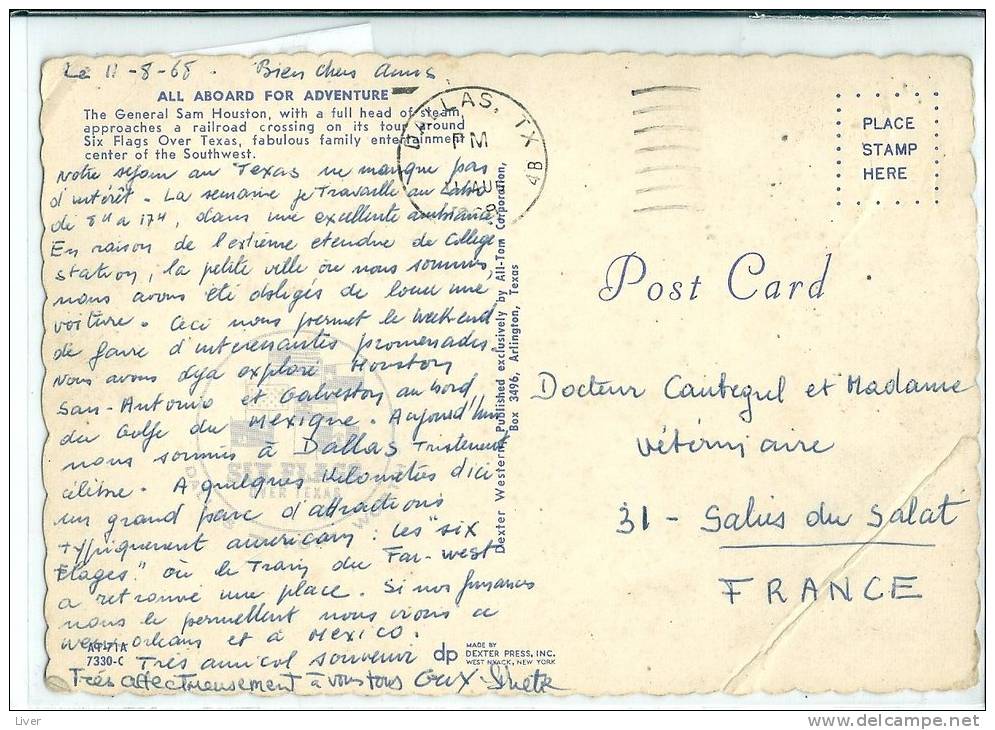 Le 11-8-68. Bien chers amis
ALL ABOARD FOR ADVENTURE
The General Sam Houston, with a full head of steam,
approaches a railroad crossing on its tour around
Six Flags Over Texas, fabulous family entertainment
center of the Southwest.
Notre séjour au Texas ne manque pas
d'intérêt. La semaine je Travaille au Labo
de 8H à 17H, dans une excellente ambiance.
En raison de l'extrème etendue de College
station, la petite ville où nous sommes,
nous avons été obligés de louer une
voiture. Ceci nous permet le week-end
de faire d'interessantes promenades.
Nous avons déja exploré Houston
San-Antonio et Galveston au bord
du Golfe du Mexique. Aujourd'hui
nous sommes à Dallas Tristement
célèbre. A quelques kilomètres d'ici
un grand parc d'attractions
typiquement americain: Les "six
Flages" où le Train du Far-West
a retrouvé une place. Si nos finances
nous le permettent nous irons a
New-orleans et à Mexico.
Très amical souvenir
Très affectueusement à vous tous
AT-71A
7330-C
SIX FLAGS
OVER TEXAS
DALLAS, TX
PM
AUG
4B
Dexter Western, Published exclusively by All-Tom Corporation,
Box 3496, Arlington, Texas
dp
MADE BY
DEXTER PRESS, INC.
WEST NYACK, NEW YORK
PLACE
STAMP
HERE
Post Card
Docteur Cantegril et Madame
Vétérinaire
31 - Salies du Salat
FRANCE
Liver
www.delcampe.net